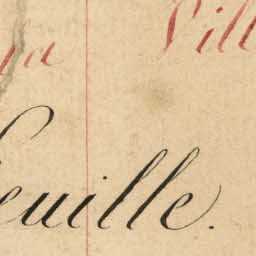 ya Vill
feuille.